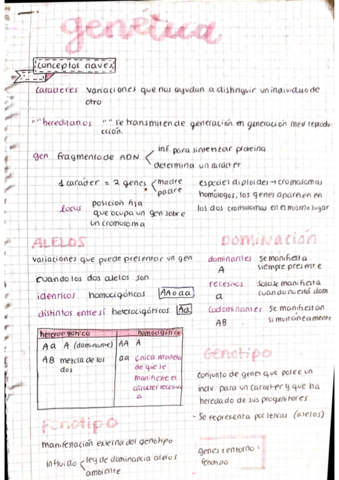 genética
conceptos claves
caracteres variaciones que nos ayudan a distinguir un individuo de
otro
""hereditarios "" se transmiten de generación en generación med reprodu
cción.
gen fragmento de ADN
inf para sintetizar proteina
determina un carácter
1 carácter = 2 genes
madre
padre
especies diploides → cromosomas
homólogos, los genes aparecen en
los dos cromosomas en el mismo lugar
locus posición fija
que ocupa un gen sobre
un cromosoma
ALELOS
variaciones que puede presentar un gen
cuando los dos alelos son
identicos homocigóticos AA o aa
distintos entre sí heterocigóticos Aa
heterocigótico homocigótico
Aa A (dominante) AA A
AB mezcla de los
dos
aa única manera
de que se
manifieste el
carácter recesivo
a
DOMINACIÓN
dominantes se manifiesta
A siempre presente
recesivos solo se manifiesta
a cuando no está dom
codominantes se manifiestan
AB simultáneamente
Genotipo
conjunto de genes que posee un
indv para un carácter y que ha
heredado de sus progenitores
- Se representa por letras (alelos)
Fenotipo
manifestación externa del genotipo
influido
ley de dominancia alelos
ambiente
genes + entorno =
fenotipo